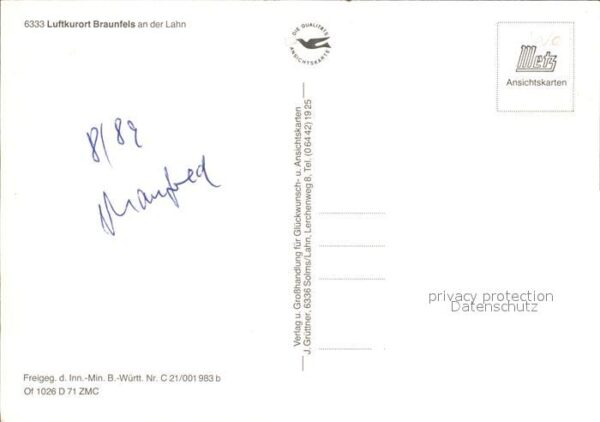 6333 Luftkurort Braunfels an der Lahn
DIE QUALITÄTS
ANSICHTSKARTE
Metz
Ansichtskarten
8/89
Manfred
Verlag u. Großhandlung für Glückwunsch- u. Ansichtskarten
J. Grüttner, 6336 Solms/Lahn, Lerchenweg 8, Tel. (0 64 42) 19 25
privacy protection
Datenschutz
Freigeg. d. Inn.-Min. B.-Württ. Nr. C 21/001 983 b
Of 1026 D 71 ZMC